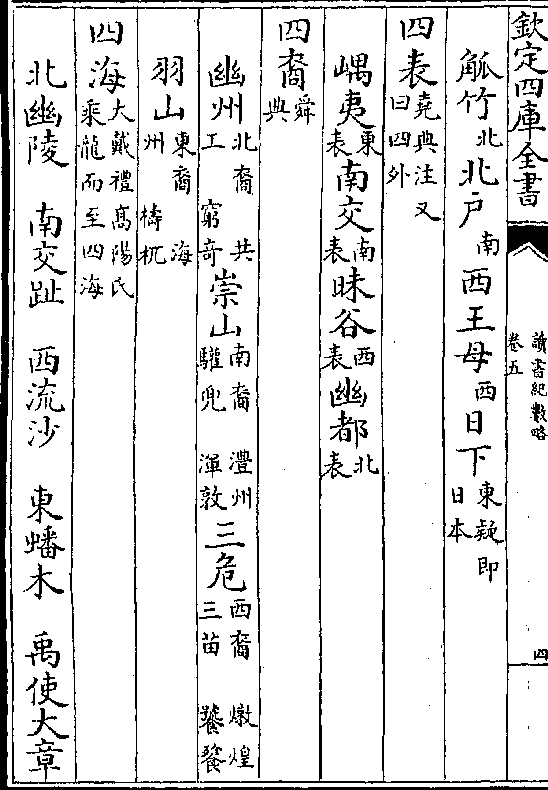 欽定四庫全書
讀書紀數略
卷五
四
觚竹北北戶南西王母西日下東疑即日本
四表堯典注又曰四外
嵎夷東表南交南表昧谷西表幽都北表
四裔舜典
幽州北裔 共工 窮奇崇山南裔 澧州驩兜 渾敦三危西裔 燉煌三苗 饕餮
羽山東裔 海州 檮杌
四海大戴禮高陽氏乘龍而至四海
北幽陵 南交趾 西流沙 東蟠木 禹使大章